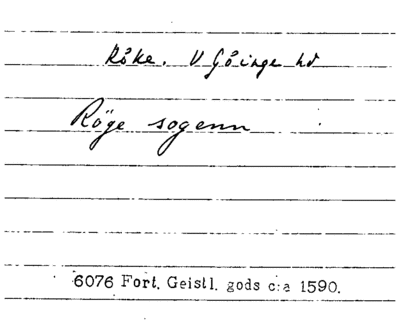 Röke. V Göinge hd
Röge sogenn
6076 Fort. Geistl. gods c:a 1590.